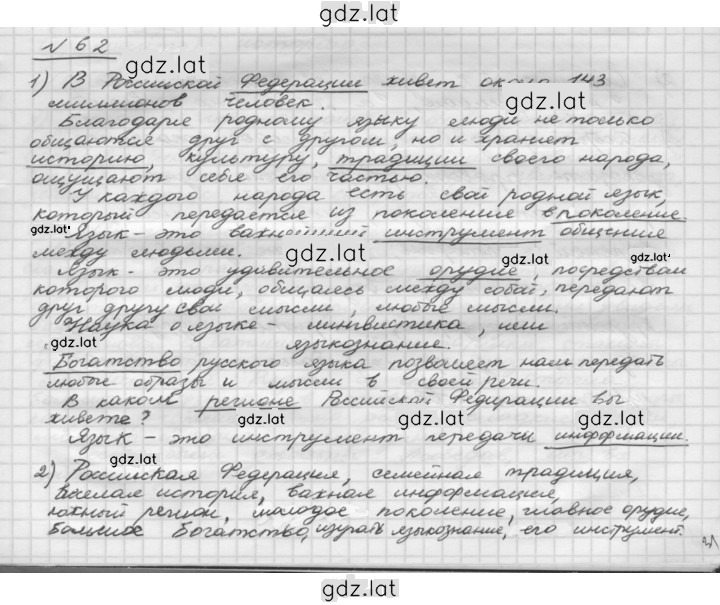 gdz.lat
№ 62
gdz.lat
1) В Российской Федерации живет около 143
gdz.lat
gdz.lat
миллионов человек.
Благодаря родному языку люди не только
общаются друг с другом, но и хранят
историю, культуру, традиции своего народа,
ощущают себя его частью.
У каждого народа есть свой родной язык,
который передается из поколение в поколение.
gdz.lat
Язык - это важнейший инструмент общения
между людьми.
gdz.lat
gdz.lat
Язык - это удивительное орудие, посредствам
которого люди, общаясь между собой, передают
друг другу свои мысли, любые мысли.
Наука о языке - лингвистика, или
языкознание.
gdz.lat
gdz.lat
Богатство русского языка позволяет нам передать
любые образы и мысли в своей речи.
В каком регионе Российской Федирации вы
живете?
gdz.lat
gdz.lat
gdz.lat
Язык - это инструмент передачи информации.
gdz.lat
2) Российская Федерация, семейная традиция,
история, важная информация,
южный регион, молодое поколение, главное орудие,
большое богатство, изучать языкознание, его инструмент.
gdz.lat
gdz.lat